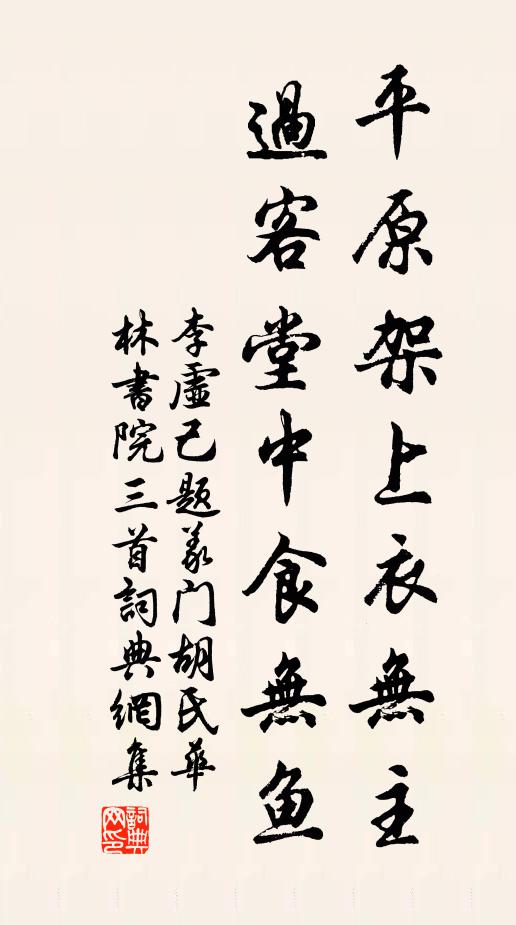 平原架上衣無主
過客堂中食無鱼
李虛己题义门胡氏華
林書院三首詞典網集
詞典網印